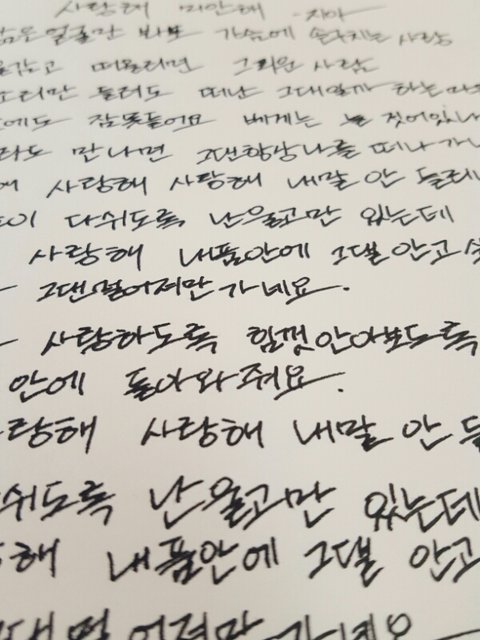 사랑해 미안해 - 지아
얼굴만 봐도 가슴에 손주는 사람
감고 떠올리면 그리운 사람
소리만 들려도 떠난 그대일까 하는
에도 잠못들어요 베게는 늘 젖어있
라도 만나면 그댄항상나를 떠나가
사랑해 사랑해 내말 안 들려
이 다쉬도록 난울고만 있는데
사랑해 내품안에 그댈 안고
그댄멀어져만 가네요.
사랑하도록 힘껏안아보도록
안에 돌아와줘요.
랑해 사랑해 내말 안 들
쉬도록 난울고만 있는데
해 내품안에 그댈 안고
그대멀어져만 가네요